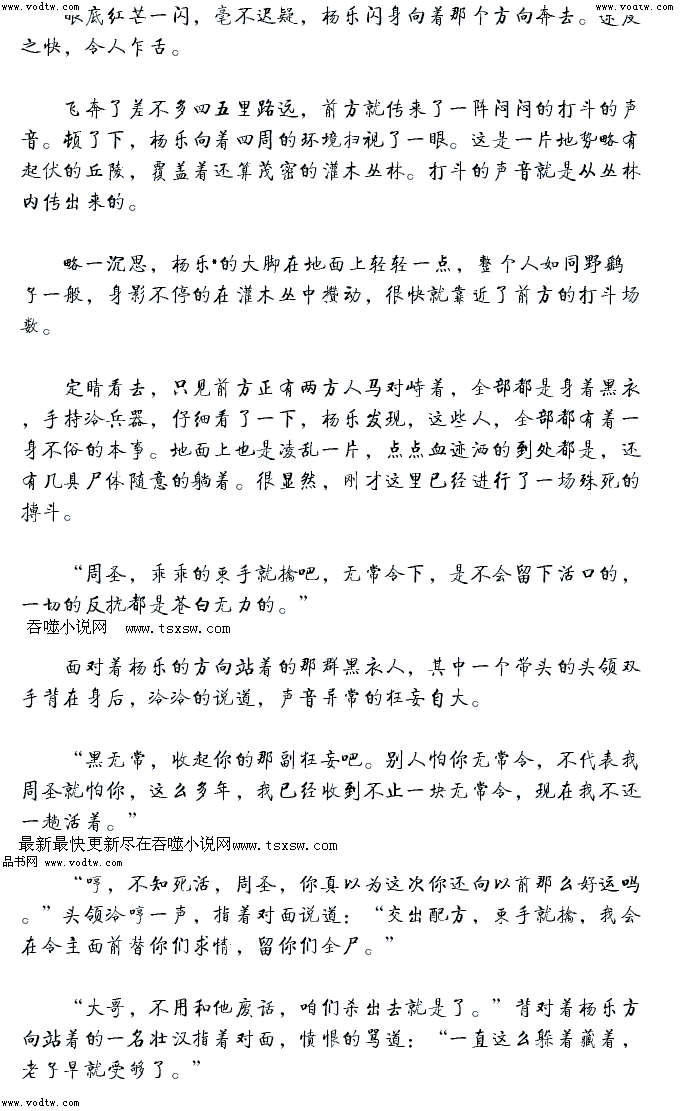 www.vodtw.com www.vodtw.com
眼底红芒一闪，毫不迟疑，杨乐闪身向着那个方向奔去。速度
之快，令人乍舌。
飞奔了差不多四五里路远，前方就传来了一阵闷闷的打斗的声
音。顿了下，杨乐向着四周的环境扫视了一眼。这是一片地势略有
起伏的丘陵，覆盖着还算茂密的灌木丛林。打斗的声音就是从丛林
内传出来的。
略一沉思，杨乐*的大脚在地面上轻轻一点，整个人如同野鹞
子一般，身影不停的在灌木丛中攒动，很快就靠近了前方的打斗场
数。
定睛看去，只见前方正有两方人马对峙着，全部都是身着黑衣
，手持冷兵器，仔细看了一下，杨乐发现，这些人，全部都有着一
身不俗的本事。地面上也是凌乱一片，点点血迹洒的到处都是，还
有几具尸体随意的躺着。很显然，刚才这里已经进行了一场殊死的
搏斗。
“周圣，乖乖的束手就擒吧，无常令下，是不会留下活口的，
一切的反抗都是苍白无力的。”
吞噬小说网 www.tsxsw.com
面对着杨乐的方向站着的那群黑衣人，其中一个带头的头领双
手背在身后，冷冷的说道，声音异常的狂妄自大。
“黑无常，收起你的那副狂妄吧。别人怕你无常令，不代表我
周圣就怕你，这么多年，我已经收到不止一块无常令，现在我不还
一趟活着。”
最新最快更新尽在吞噬小说网www.tsxsw.com
品书网 www.vodtw.com
“哼，不知死活，周圣，你真以为这次你还向以前那么好运吗
。”头领冷哼一声，指着对面说道：“交出配方，束手就擒，我会
在令主面前替你们求情，留你们全尸。”
“大哥，不用和他废话，咱们杀出去就是了。”背对着杨乐方
向站着的一名壮汉指着对面，愤恨的骂道：“一直这么躲着藏着，
老子早就受够了。”
www.vodtw.com